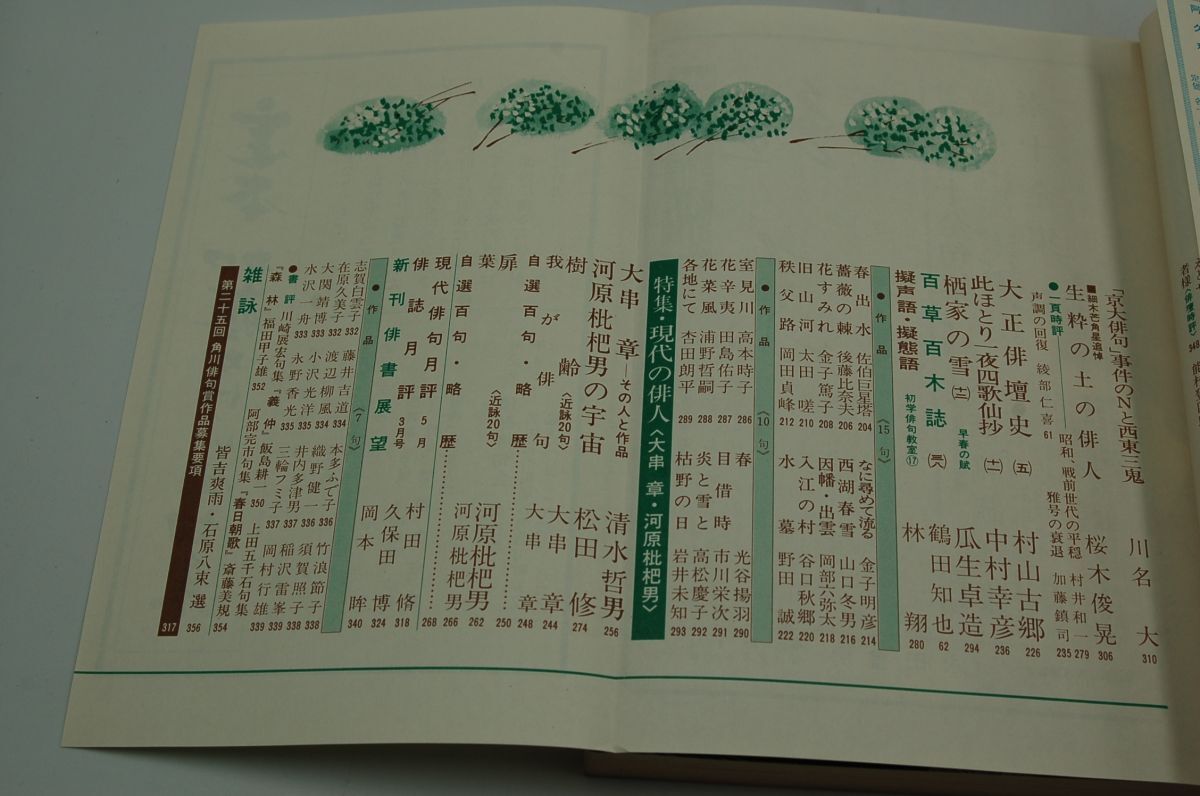 『京大俳句』事件のNと西東三鬼 川名大 310
■細木芒角星追悼
生粋の土の俳人 桜木俊晃 306
●一頁時評
昭和・戦前世代の平穏 村井和一 279
声調の回復 綾部仁喜 61
雅号の衰退 加藤鎮司 235
大正俳壇史 (五) 村山古郷 226
此ほとり一夜四歌仙抄 (十一) 中村幸彦 236
栖家の雪 (十二) 瓜生卓造 294
百草百木誌 早春の賦 鶴田知也 62
擬声語・擬態語 初学俳句教室⑰ 林翔 280
●作品 〈15句〉
春出水 佐伯巨星塔 204
なに尋めて流る 金子明彦 214
薔薇の棘 後藤比奈夫 206
西湖春雪 山口冬男 216
花すみれ 金子篤子 208
因幡・出雲 岡部六弥太 218
旧山河 太田嗟 210
入江の村 谷口秋郷 220
秩父路 岡田貞峰 212
水墓 野田誠 222
●作品 〈10句〉
室見川 高本時子 286
春 光谷揚羽 290
花辛夷 田島佑子 287
目借時 市川栄次 291
花菜風 浦野哲嗣 288
炎と雪と 高松慶子 292
各地にて 杏田朗平 289
枯野の日 岩井未知 293
特集・現代の俳人〈大串章・河原枇杷男〉
大串章―その人と作品 清水哲男 256
河原枇杷男の宇宙 松田修 274
樹齢 〈近詠20句〉 大串章 244
我が俳句 大串章 248
自選百句・略歴 250
扉 〈近詠20句〉 河原枇杷男 262
葉 河原枇杷男 266
自選百句・略歴 268
現代俳句月評 5月 村田脩 318
俳誌月評 3月号 久保田博 324
新刊俳書展望 岡本眸 340
●作品 〈7句〉
志賀白雲子 332
藤井吉道 334
本多ふで子 336
竹浪節子 338
在原久美子 332
渡辺柳風 334
織野健一 336
須賀照子 338
大関靖博 333
小沢光洋 335
井内多津男 337
稲沢雷峯 339
水沢一舟 333
永野香光 335
三輪フミ子 337
岡村行雄 339
●書評
川崎展宏句集『義仲』 飯島耕一 350
上田五千石句集『森林』 福田甲子雄 352
阿部完市句集『春日朝歌』 斎藤美規 354
雑詠 皆吉爽雨・石原八束選 356
第二十五回 角川俳句賞作品募集要項 317